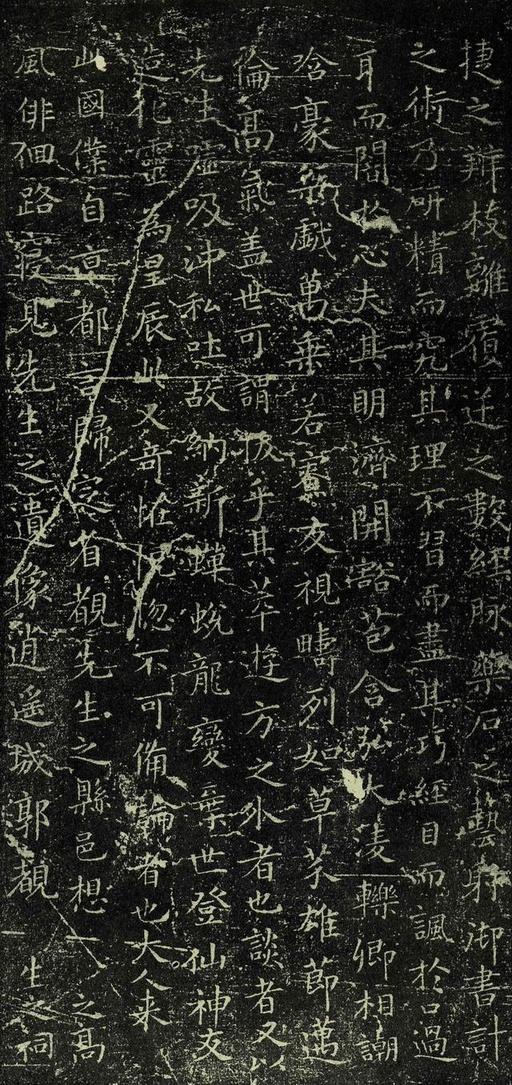 捷之辯枝離覆逆之數經脉藥石之藝射御書計
之術乃研精而究其理不習而盡其巧經目而諷於口過
耳而闇於心夫其明濟開豁苞含弘大淩轢卿相謿
唅豪桀戲萬乘若寮友視疇列如草芥雄節邁
倫高氣盖世可謂拔乎其萃遊方之外者也談者又以
先生噓吸沖和吐故納新蟬蛻龍變棄世登仙神友
造化靈為星辰此又奇怪怳惚不可備論者也大人来
此國僕自京都言歸定省覩先生之縣邑想之高
風俳佪路寢見先生之遺像逍遙城郭覩生之祠